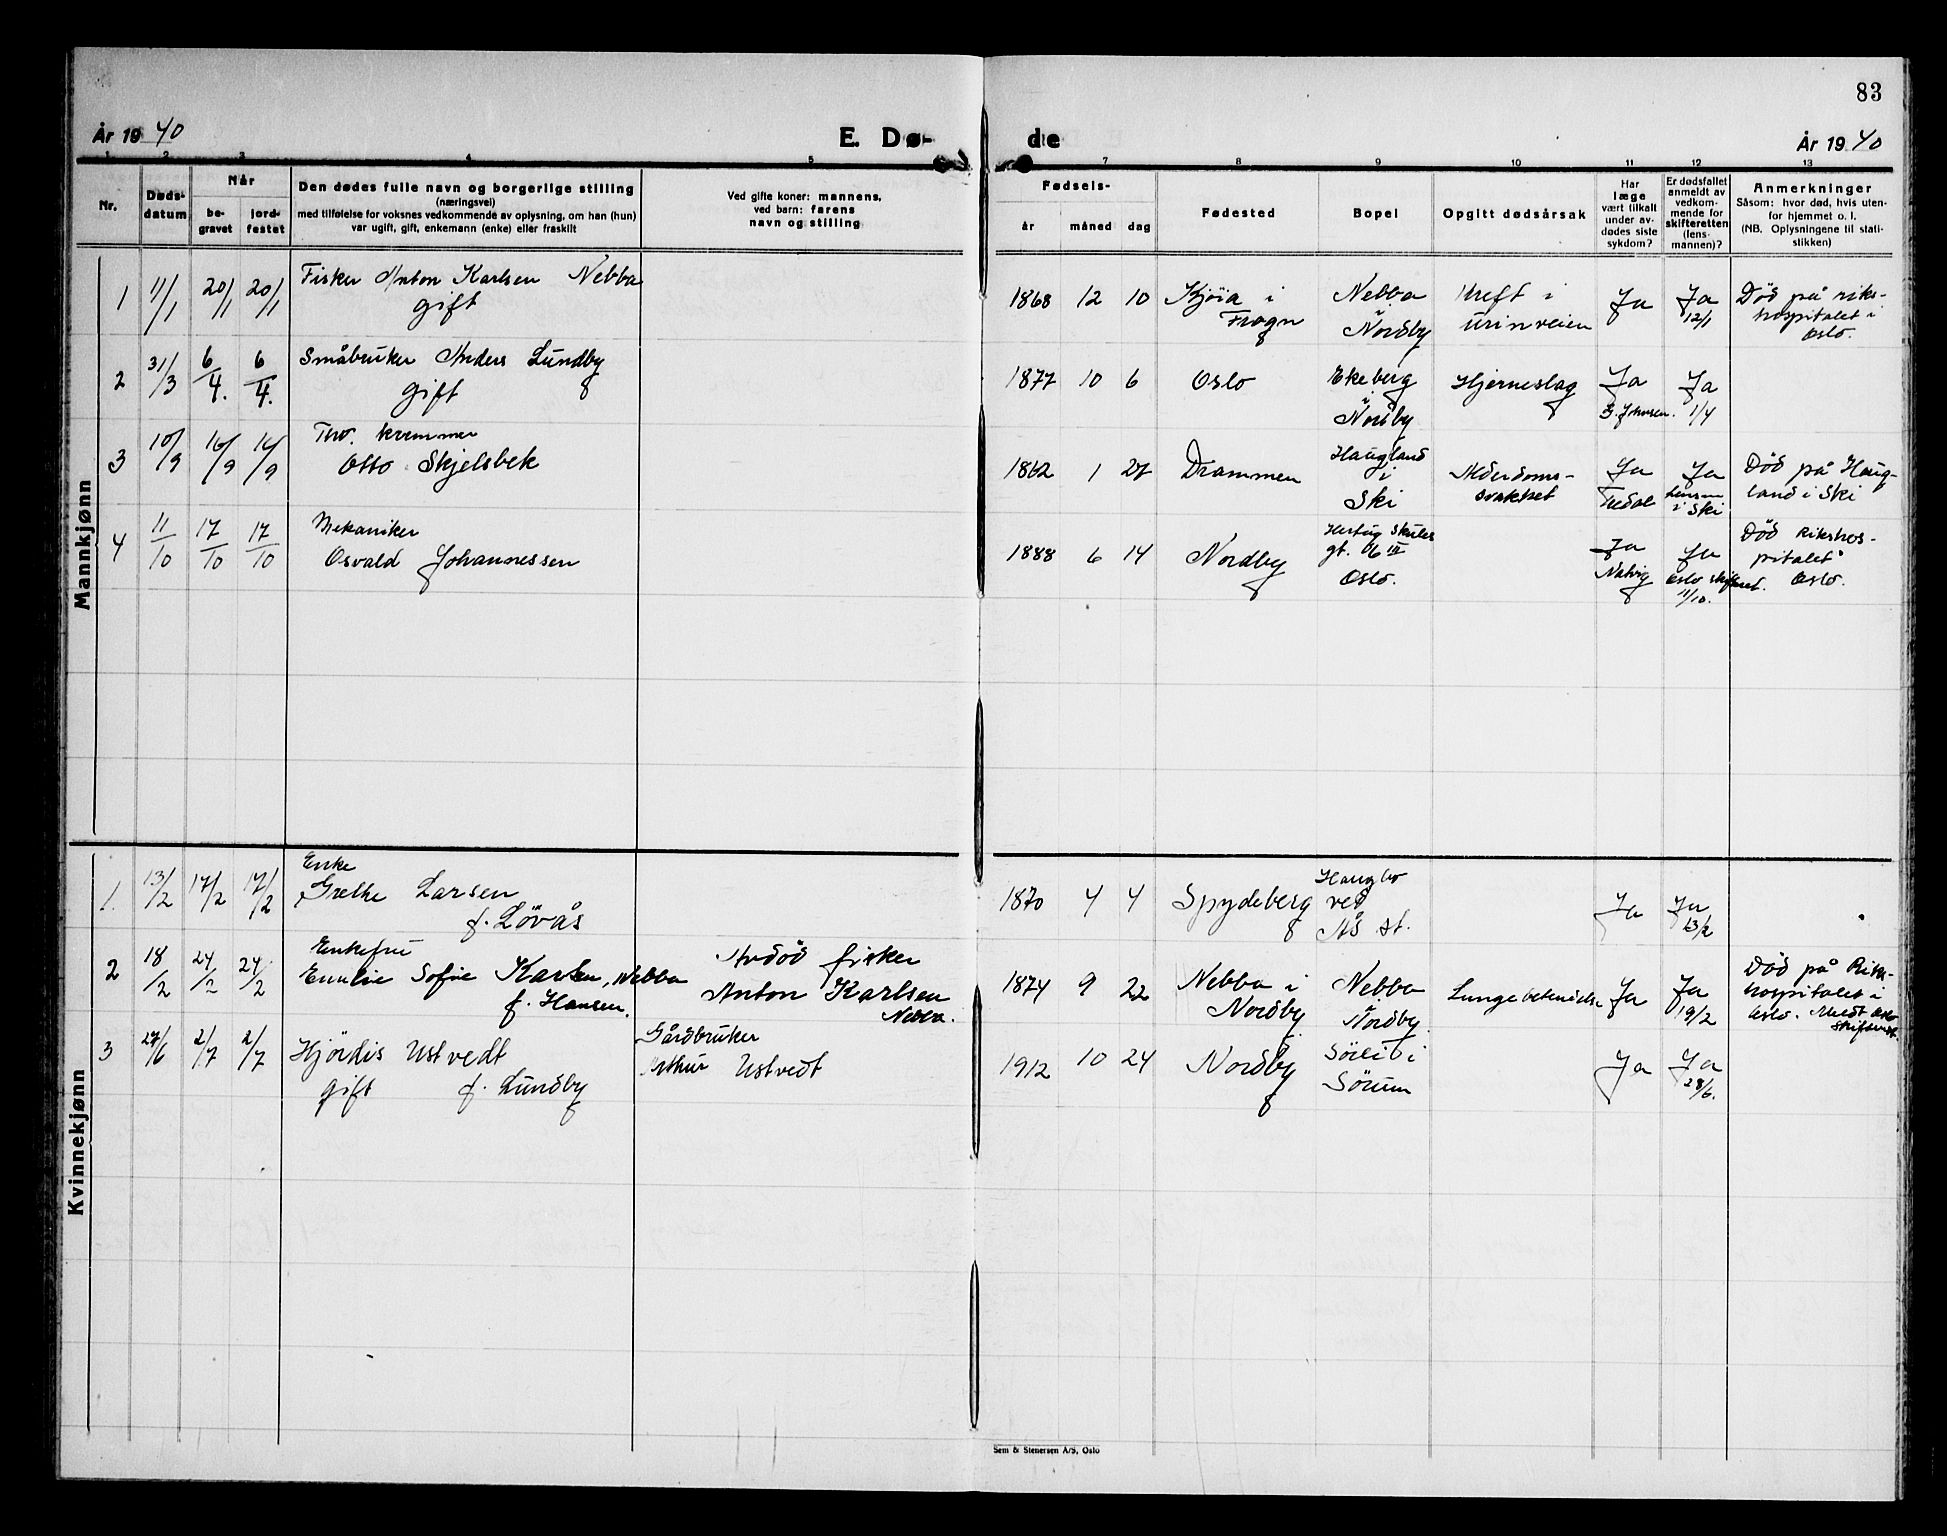 83
År 1940
E. Dø-
de
År 1940
1 2 3 4 5 7 8 9 10 11 12 13
Nr.
Døds-
datum
Når
be-
gravet
jord-
festet
Den dødes fulle navn og borgerlige stilling
(næringsvei)
med tilføielse for voksnes vedkommende av oplysning, om han (hun)
var ugift, gift, enkemann (enke) eller fraskilt
Ved gifte koner: mannens,
ved barn: farens
navn og stilling
Fødsels-
år
måned
dag
Fødested
Bopel
Opgitt dødsårsak
Har
læge
vært tilkalt
under av-
dødes siste
sykdom?
Er dødsfallet
anmeldt av
vedkom-
mende for
skifteretten
(lens-
mannen)?
Anmerkninger
Såsom: hvor død, hvis uten-
for hjemmet o. l.
(NB. Oplysningene til stati-
stikken)
Mannkjønn
1 11/1 20/1 20/1 Fisker Anton Karlsen Nebba
gift
1868 12 10 Kjøia i
Frogn
Nebba
Nordby
Kreft i
urinveien
Ja
Ja
12/1
Død på riks-
hospitalet i
Oslo.
2 31/3 6/4. 6/4. Småbruker Anders Lundby
gift
1877 10 6 Oslo
Ekeberg
Nordby
Hjerneslag
Ja
Johnsen.
Ja
1/4
3 10/9 16/9 16/9
Otto Skjelsbek
1862 1 27 Drammen
Haugland
i
Ski
Alderdoms-
svakhet
Ja
Ja
i Ski
Død på Haug-
land i Ski
4 11/10 17/10 17/10 Mekaniker
Osvald Johannessen
1888 6 14 Nordby
Hertug Skules
gt. III
Oslo.
Ja
Natvig
Ja
Oslo skifteret.
11/10.
Død Rikshos-
pitalet
Oslo.
Kvinnekjønn
1. 13/2 17/2 17/2 Enke
Grethe Larsen
f. Løvås
1870 4 4 Spydeberg
Haugbo
ved
Ås st.
Ja
Ja
13/2
2 18/2 24/2 24/2 Enkefru
Emilie Sofie Karlsen, Nebba
f. Hansen.
Avdød fisker
Anton Karlsen
Nebba.
1874 9 22 Nebba i
Nordby
Nebba
Nordby.
Lungebetendelse
Ja
Ja
19/2
Død på Riks-
hospitalet i
Oslo. Meldt Oslo
skifterett.
3 27/6 2/7 2/7 Hjørdis Ustvedt
gift f. Lundby
Gårdbruker
Arthur Ustvedt
1912 10 24 Nordby
Sørli i
Sørum
Ja
Ja
28/6.
Sem & Stenersen A/S, Oslo